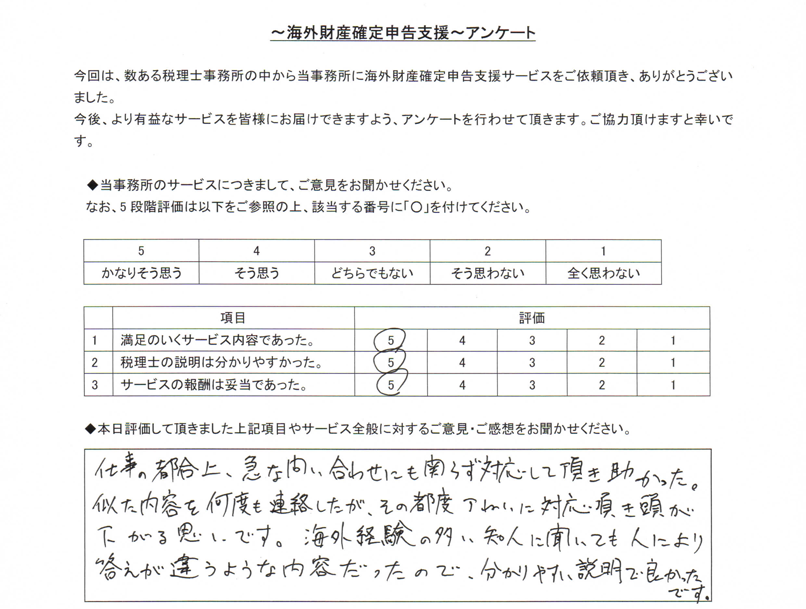 ～海外財産確定申告支援～アンケート
今回は、数ある税理士事務所の中から当事務所に海外財産確定申告支援サービスをご依頼頂き、ありがとうござい
ました。
今後、より有益なサービスを皆様にお届けできますよう、アンケートを行わせて頂きます。ご協力頂けますと幸いで
す。
◆当事務所のサービスにつきまして、ご意見をお聞かせください。
なお、5段階評価は以下をご参照の上、該当する番号に「〇」を付けてください。
5 4 3 2 1
かなりそう思う そう思う どちらでもない そう思わない 全く思わない
項目 評価
1 満足のいくサービス内容であった。 5 4 3 2 1
2 税理士の説明は分かりやすかった。 5 4 3 2 1
3 サービスの報酬は妥当であった。 5 4 3 2 1
◆本日評価して頂きました上記項目やサービス全般に対するご意見・ご感想をお聞かせください。
仕事の都合上、急な問い合わせにも関らず対応して頂き助かった。
似た内容を何度も連絡したが、その都度丁ねいに対応頂き頭が
下がる思いです。海外経験の多い知人に聞いても人により
答えが違うような内容だったので、分かりやすい説明で良かった
です。